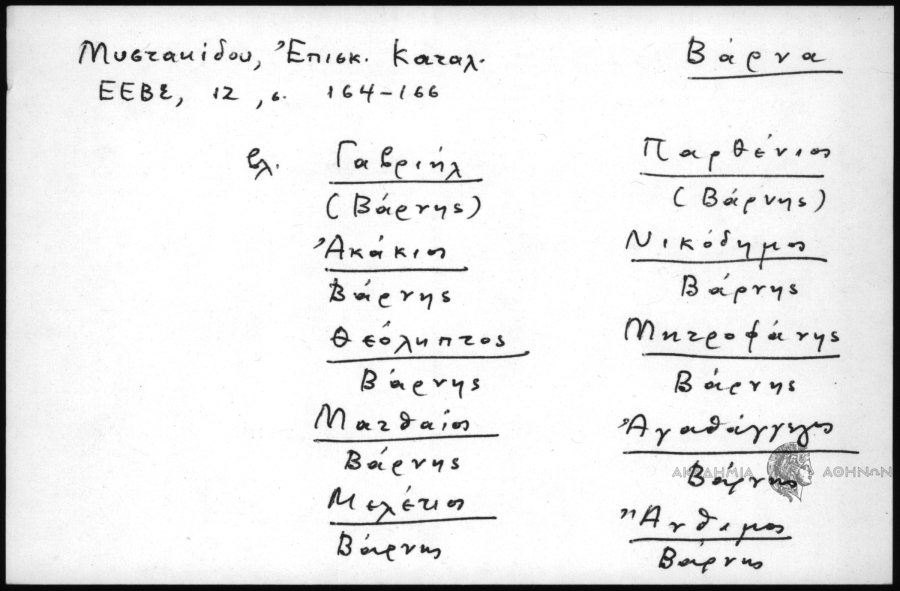 Μυστακίδου, Ἐπισκ. Καταλ.
ΕΕΒΣ, 12, σ. 164-166
Βάρνα
βλ. Γαβριήλ
(Βάρνης)
Ἀκάκιος
Βάρνης
Θεόληπτος
Βάρνης
Ματθαίος
Βάρνης
Μελέτιος
Βάρνης
Παρθένιος
(Βάρνης)
Νικόδημος
Βάρνης
Μητροφάνης
Βάρνης
Ἀγαθάγγελος
Βάρνης
Ἄνθιμος
Βάρνης
ΑΚΑΔΗΜΙΑ ΑΘΗΝΩΝ